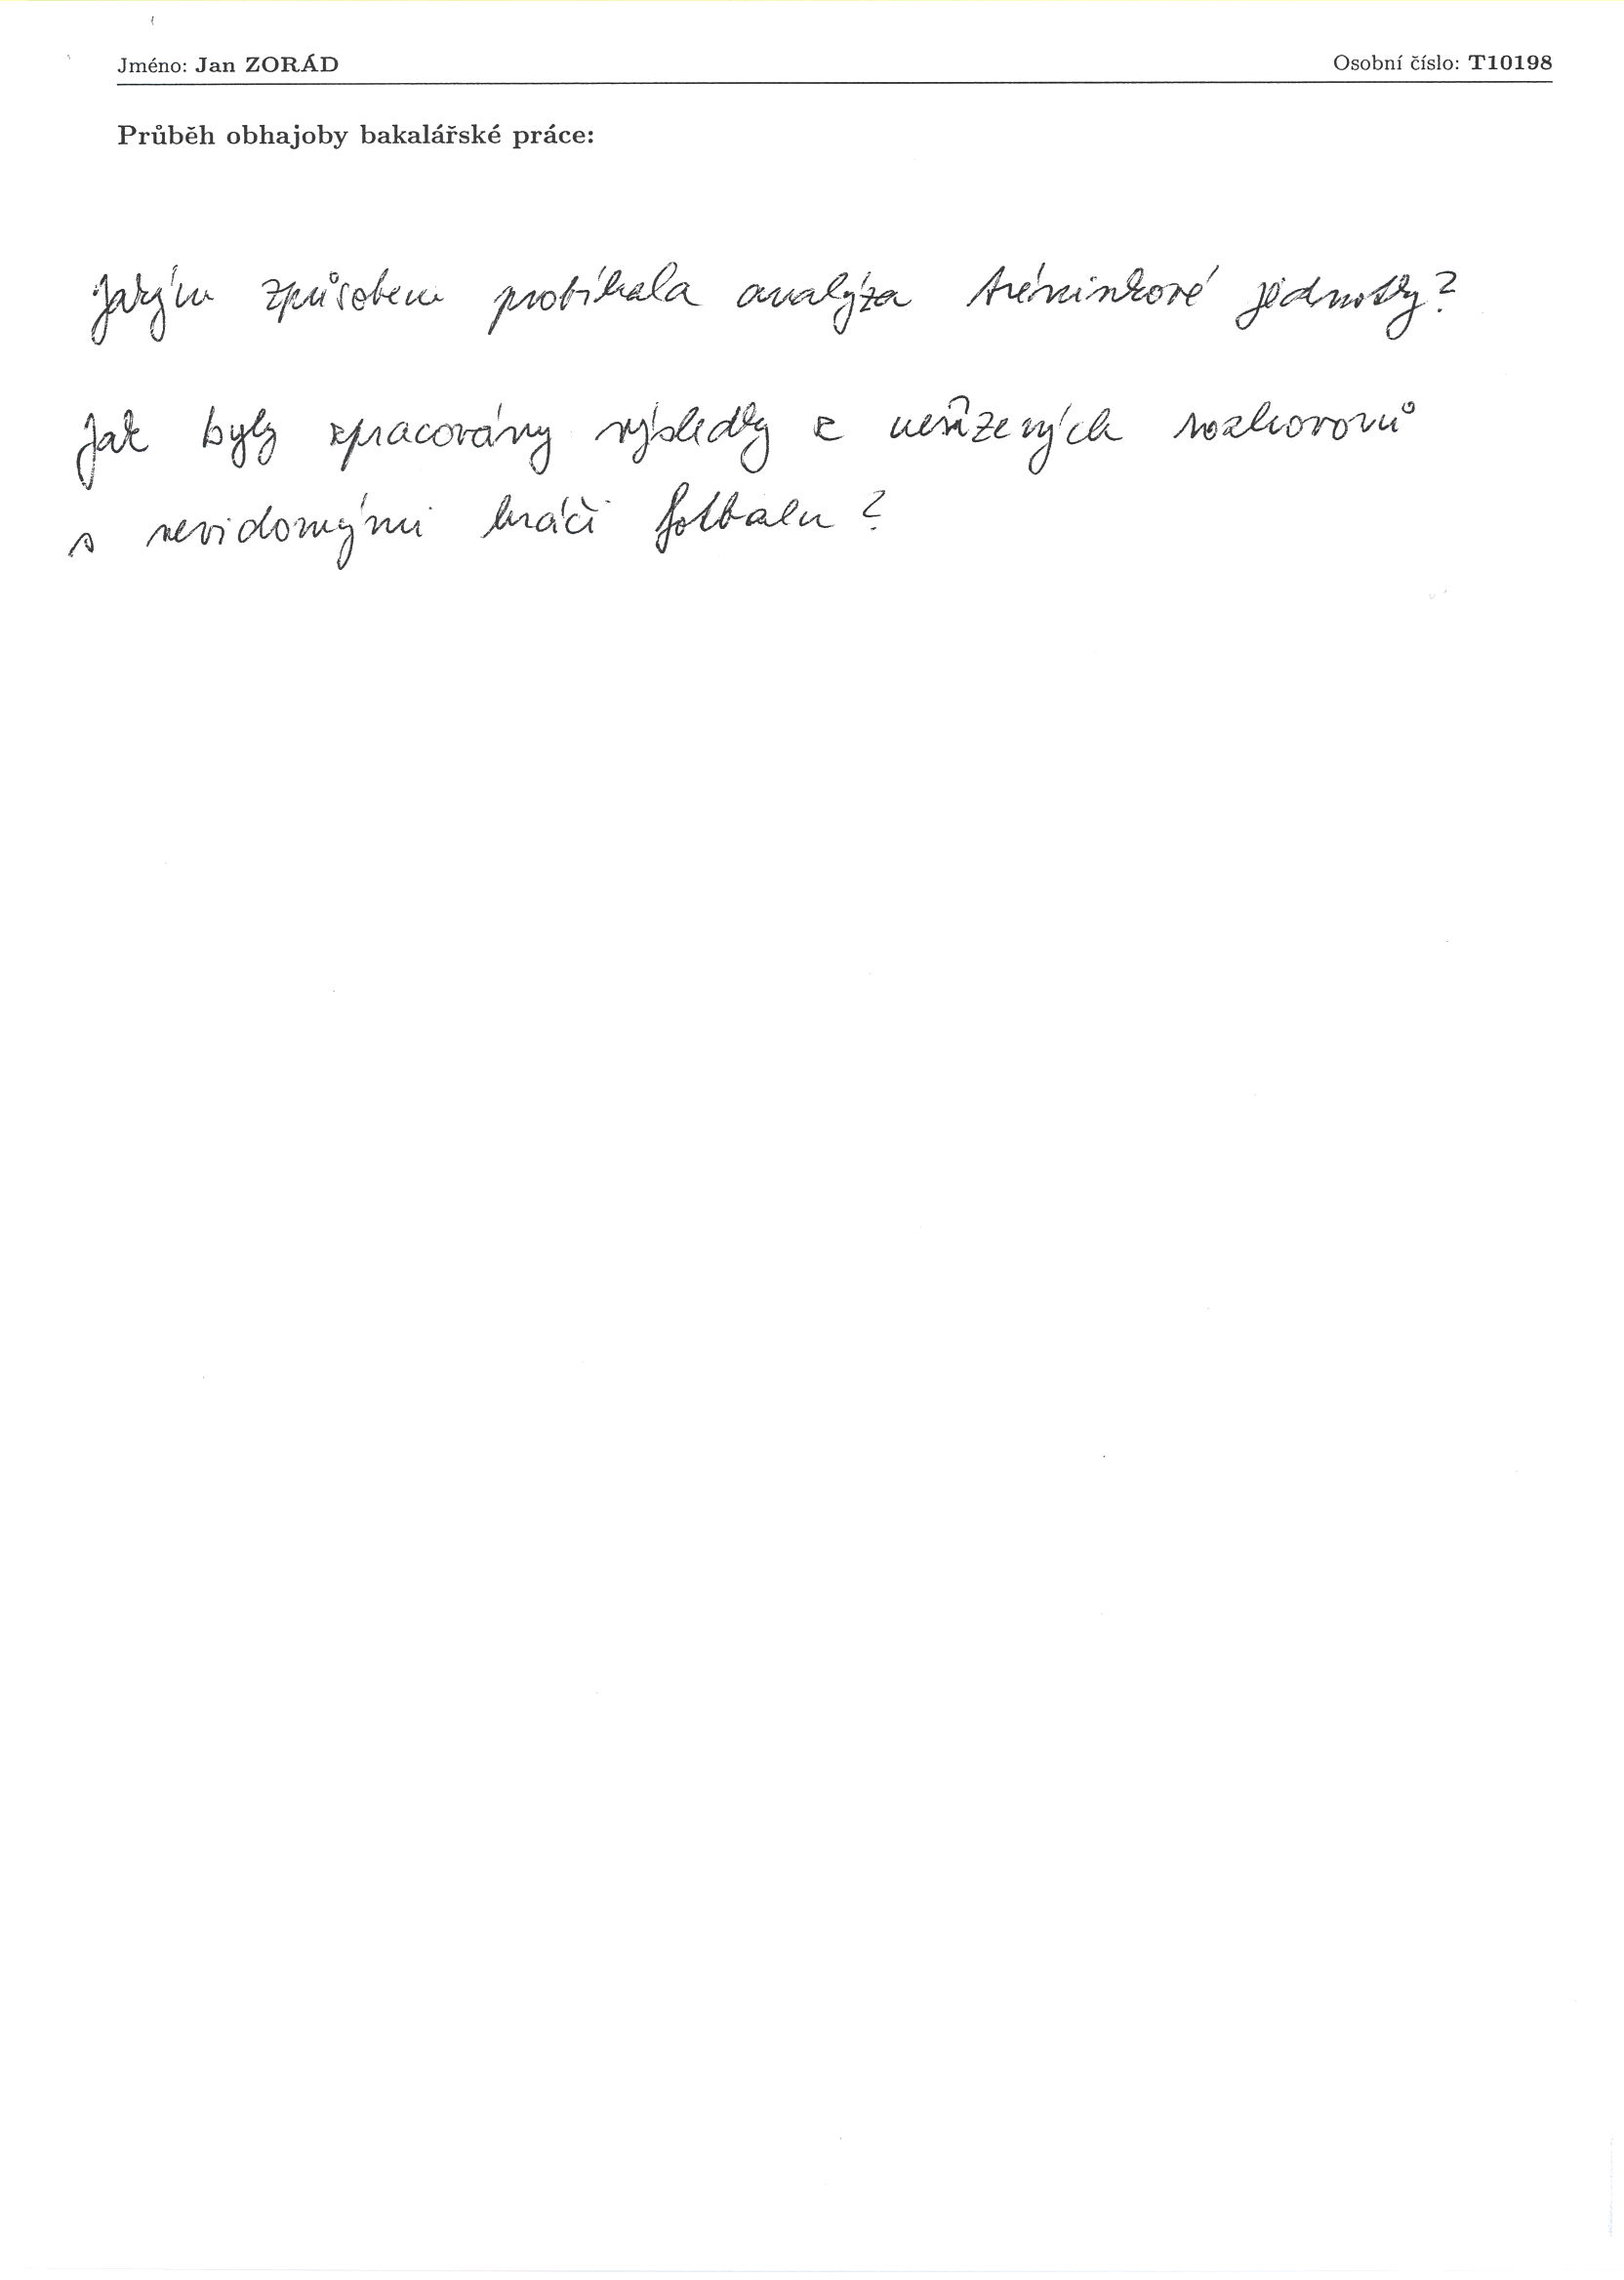 Jméno: Jan ZORÁD Osobní číslo: T10198
Průběh obhajoby bakalářské práce:
Jakým způsobem probíhala analýza tréninkové jednotky?
Jak byly zpracovány výsledky z neřízených rozhovorů
s nevidomými hráči fotbalu?